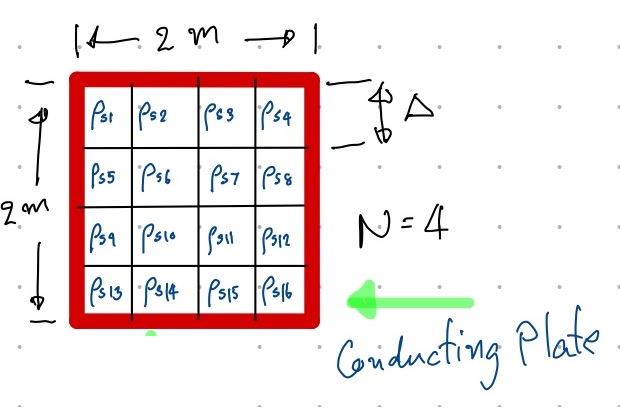 2 m
ρs1 ρs2 ρs3 ρs4
Δ
ρs5 ρs6 ρs7 ρs8
2m
ρs9 ρs10 ρs11 ρs12
N = 4
ρs13 ρs14 ρs15 ρs16
Conducting Plate